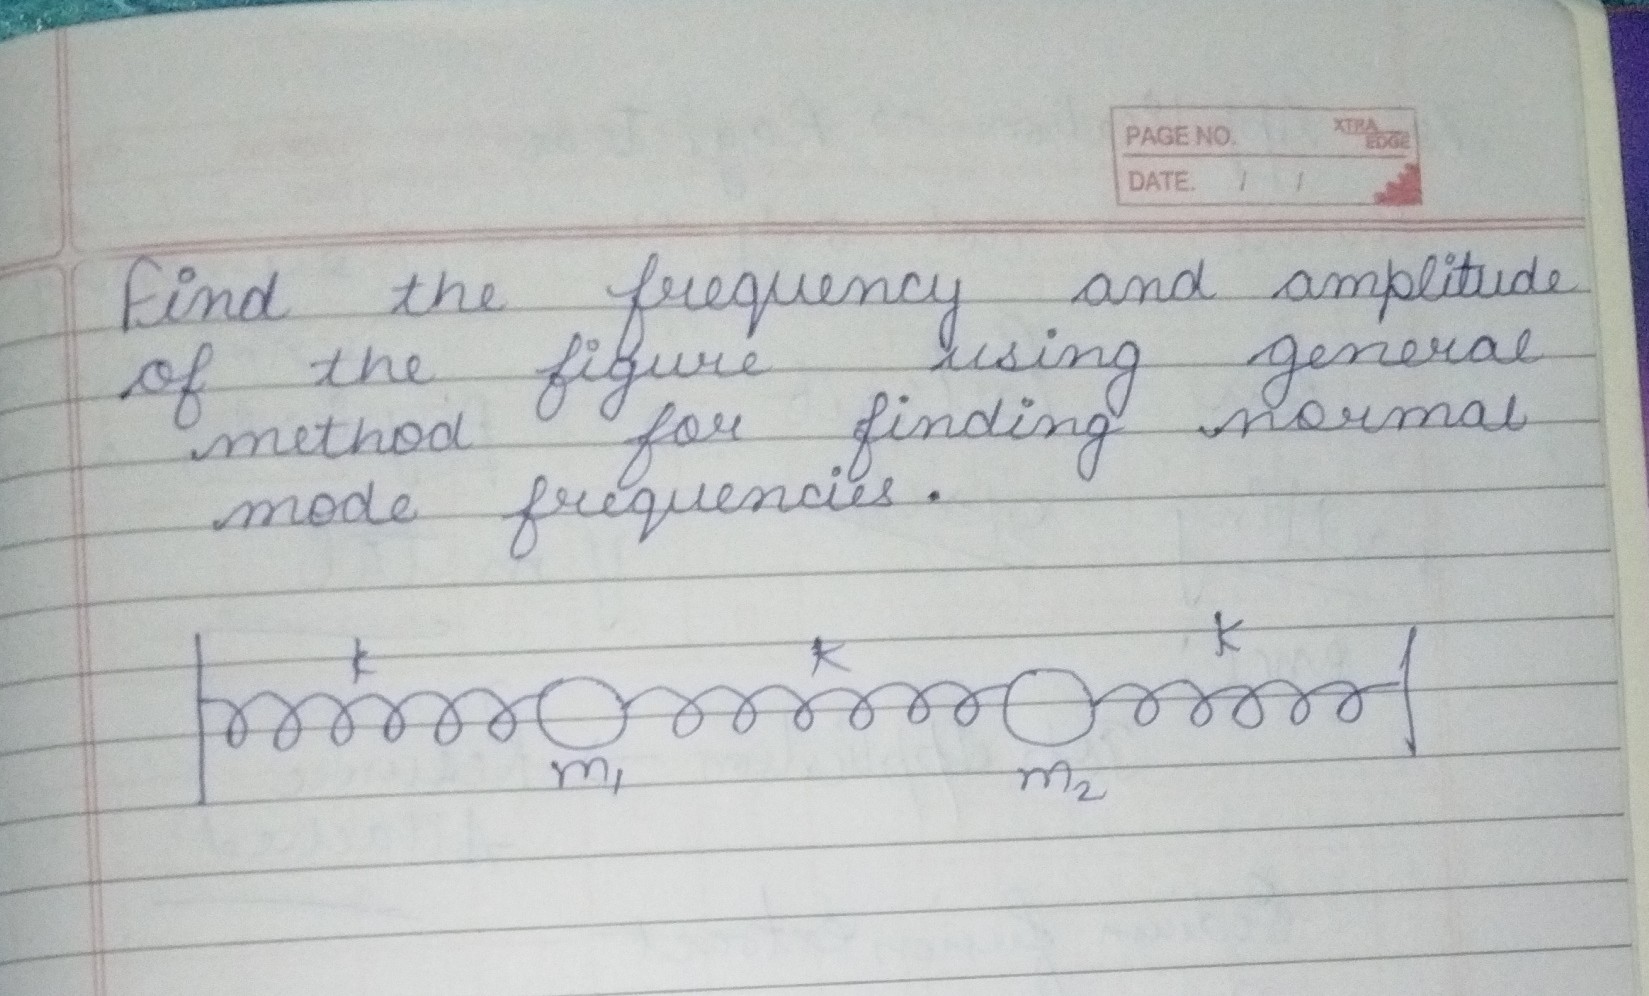 PAGE NO.
XTRA
EDGE
DATE. / /
Find the frequency and amplitude
of the figure using general
method for finding normal
mode frequencies.
k k k
m₁ m₂